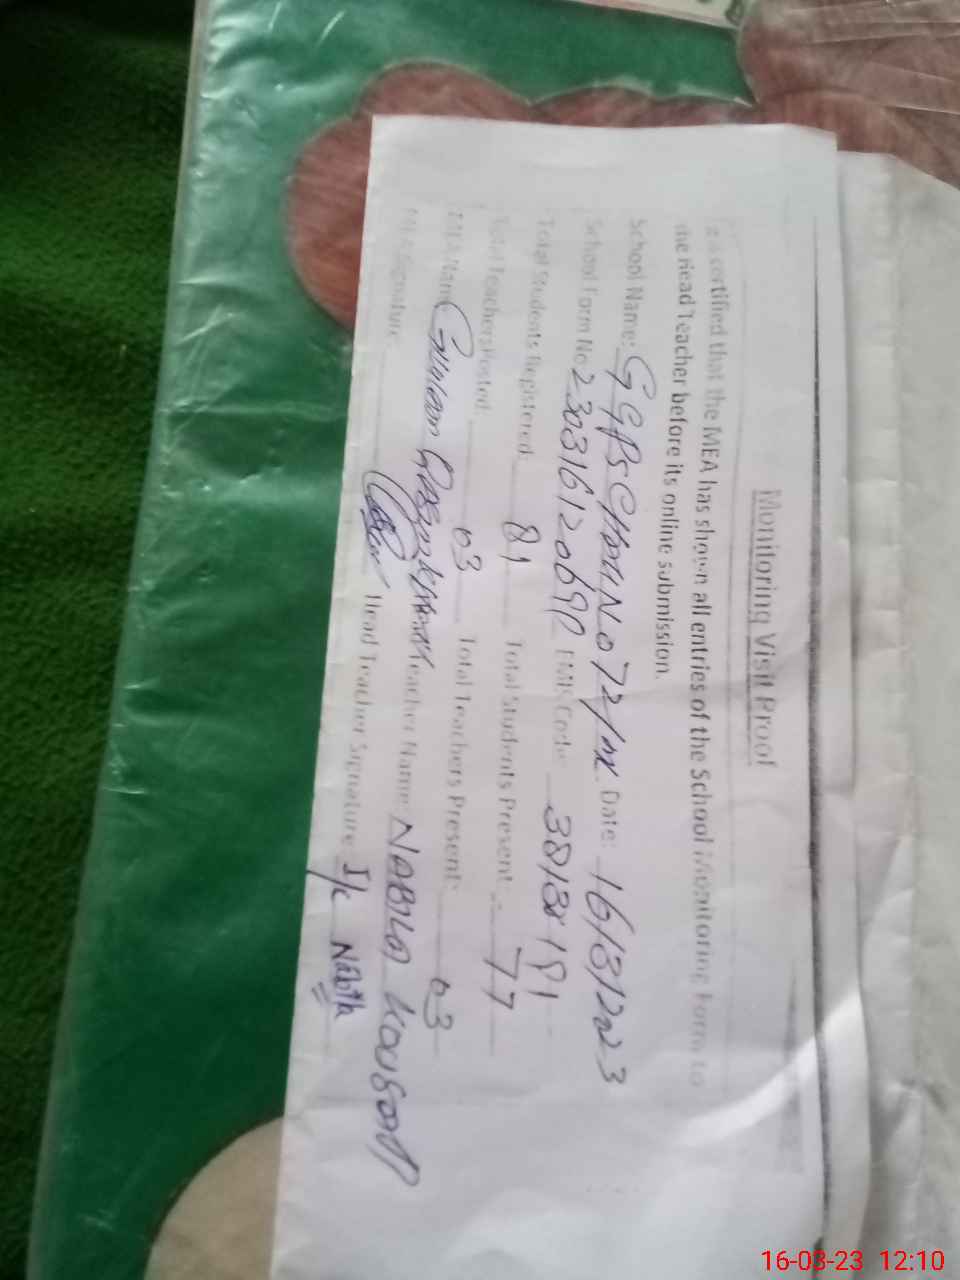 Monitoring Visit Proof
It is certified that the MEA has shown all entries of the School Monitoring Form to
the Head Teacher before its online submission.
School Name: GGPS CHAK No 72/M Date: 16/3/2023
School Form No 230316120690 EMIS Code: 38138181
Total Students Registered: 81 Total Students Present: 77
Total Teachers Posted: 03 Total Teachers Present: 03
MEA Name Ghulam Teacher Name: NABILA KOUSAR
MEA Signature: Head Teacher Signature: I/c Nabila
16-03-23 12:10